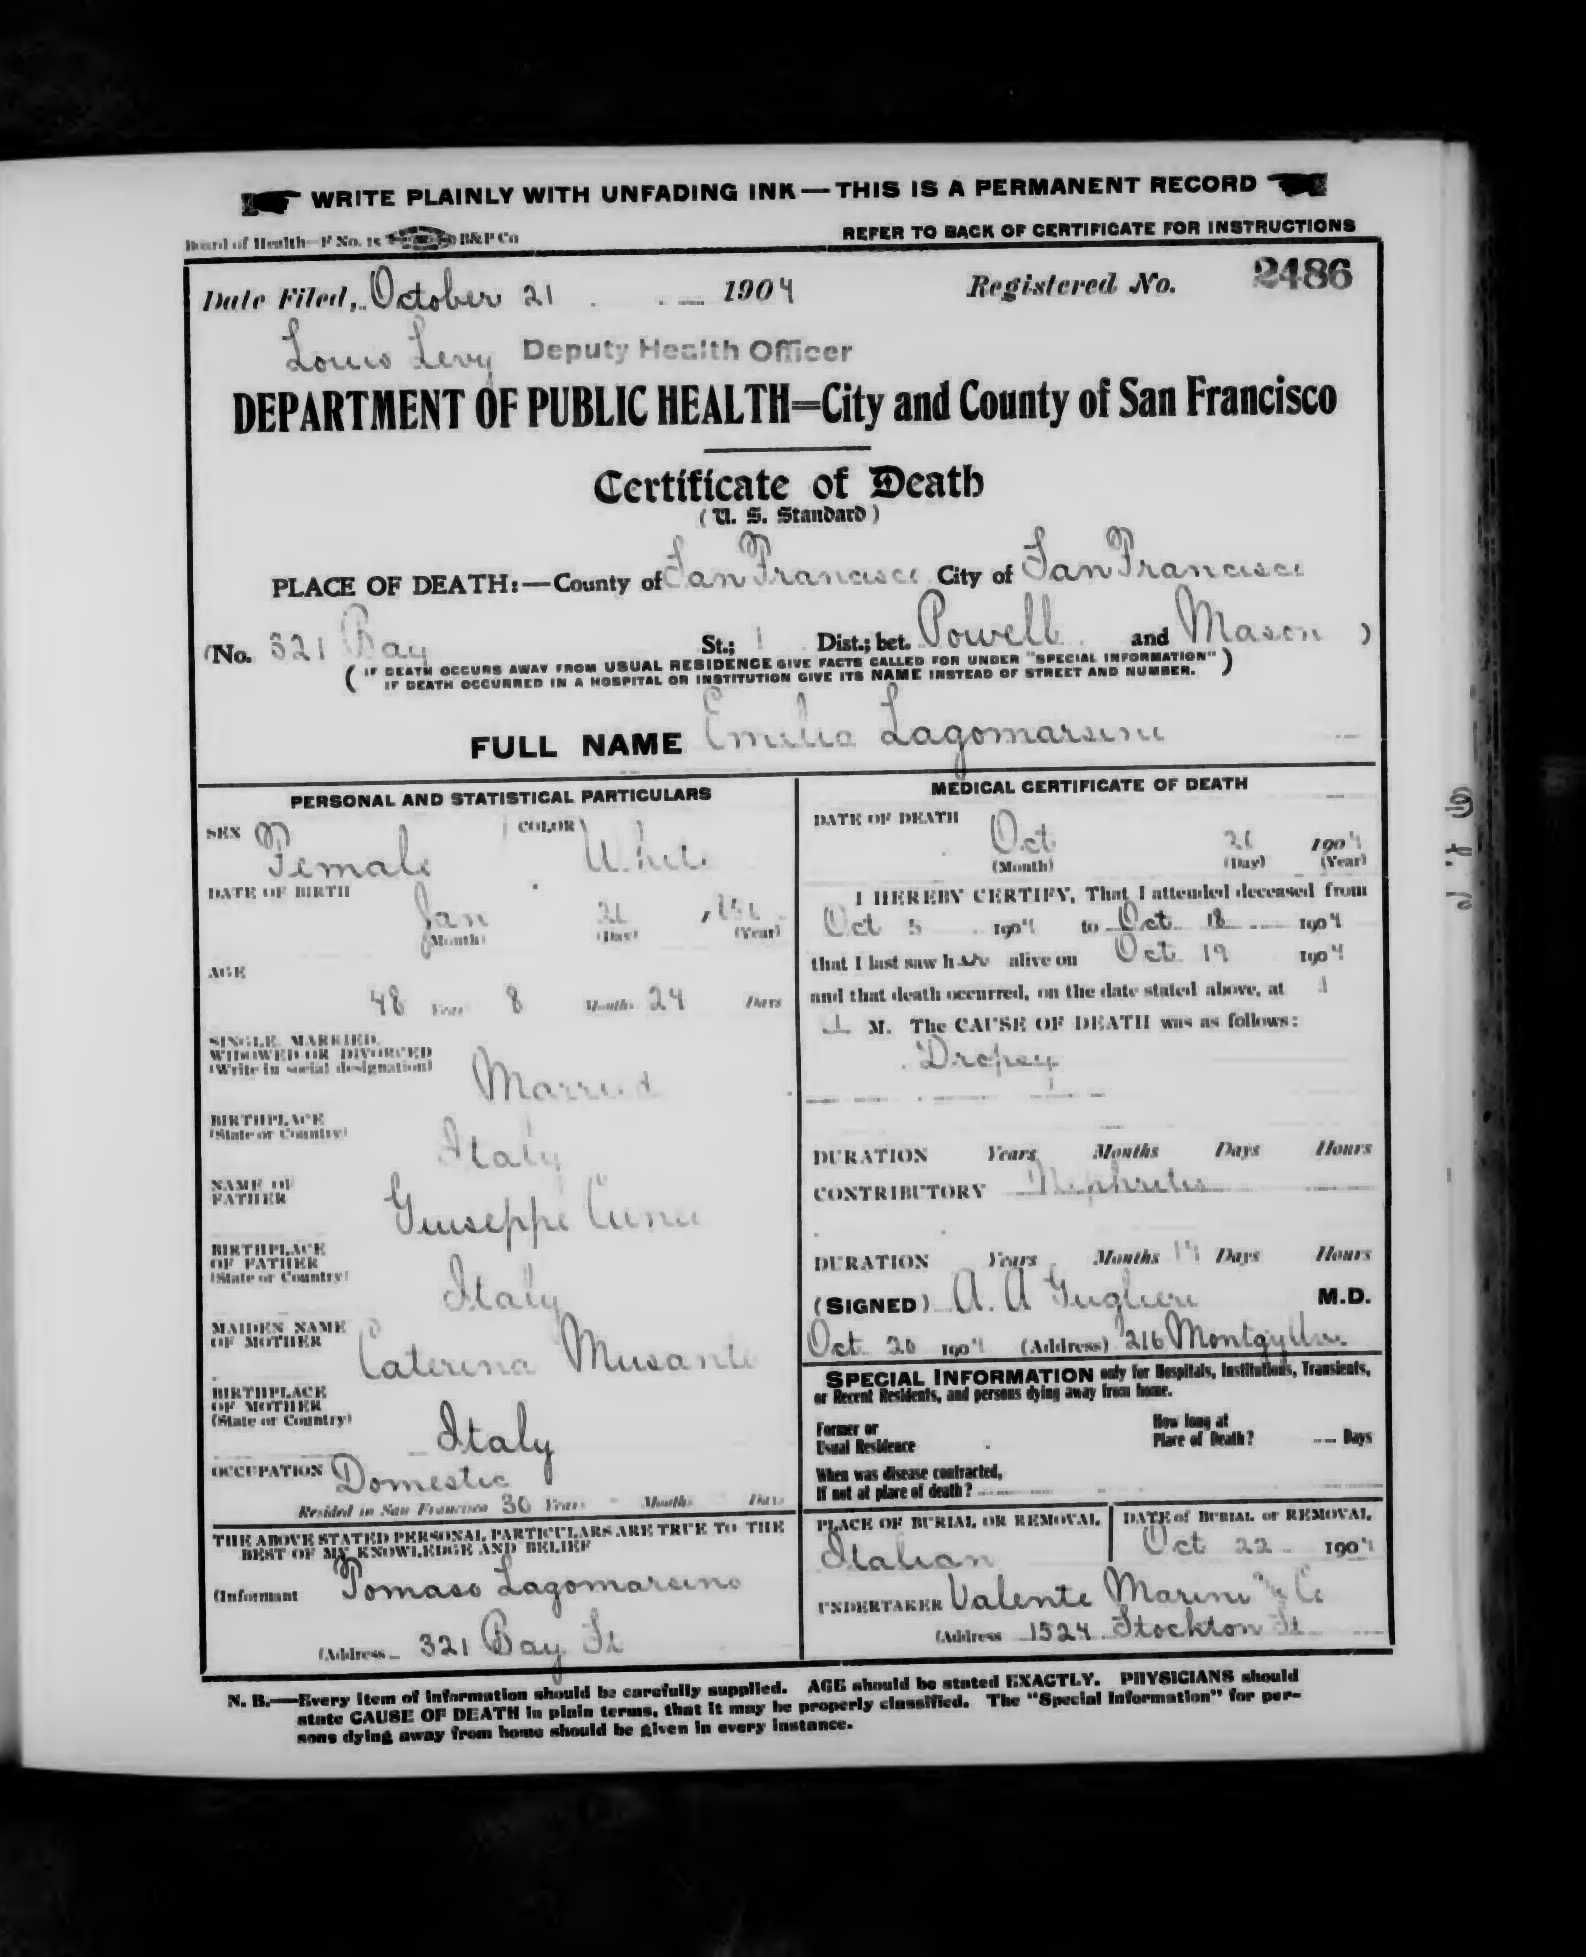 WRITE PLAINLY WITH UNFADING INK—THIS IS A PERMANENT RECORD
Board of Health—F No. 15 B&P Co
REFER TO BACK OF CERTIFICATE FOR INSTRUCTIONS
Date Filed, October 21 1904
Registered No. 2486
Louis Levy Deputy Health Officer
DEPARTMENT OF PUBLIC HEALTH=City and County of San Francisco
Certificate of Death
(U. S. Standard)
PLACE OF DEATH:—County of San Francisco City of San Francisco
(No. 321 Bay St.; 1 Dist.; bet. Powell and Mason )
( IF DEATH OCCURS AWAY FROM USUAL RESIDENCE GIVE FACTS CALLED FOR UNDER "SPECIAL INFORMATION" )
IF DEATH OCCURRED IN A HOSPITAL OR INSTITUTION GIVE ITS NAME INSTEAD OF STREET AND NUMBER.
FULL NAME Emilia Lagomarsini
PERSONAL AND STATISTICAL PARTICULARS
SEX Female COLOR White
DATE OF BIRTH Jan
(Month) (Day) (Year)
AGE
48 Years 8 Months 24 Days
SINGLE, MARRIED,
WIDOWED OR DIVORCED
(Write in social designation) Married
BIRTHPLACE
(State or Country) Italy
NAME OF
FATHER Giuseppe
BIRTHPLACE
OF FATHER
(State or Country) Italy
MAIDEN NAME
OF MOTHER Caterina Musante
BIRTHPLACE
OF MOTHER
(State or Country) Italy
OCCUPATION Domestic
Resided in San Francisco 30 Years Months Days
THE ABOVE STATED PERSONAL PARTICULARS ARE TRUE TO THE
BEST OF MY KNOWLEDGE AND BELIEF
(Informant Tomaso Lagomarsino
(Address 321 Bay St
MEDICAL CERTIFICATE OF DEATH
DATE OF DEATH
Oct 1904
(Month) (Day) (Year)
I HEREBY CERTIFY, That I attended deceased from
Oct 5 1904 to Oct 18 1904
that I last saw her alive on Oct 19 1904
and that death occurred, on the date stated above, at
M. The CAUSE OF DEATH was as follows:
Dropsy
DURATION Years Months Days Hours
CONTRIBUTORY Nephritis
DURATION Years Months Days Hours
(SIGNED) A. A Guglieri M.D.
Oct 20 1904 (Address) 216 Montgy Ave.
SPECIAL INFORMATION only for Hospitals, Institutions, Transients,
or Recent Residents, and persons dying away from home.
Former or
Usual Residence
How long at
Place of Death? Days
When was disease contracted,
If not at place of death?
PLACE OF BURIAL OR REMOVAL
Italian
DATE of BURIAL or REMOVAL
Oct 22 1904
UNDERTAKER Valente Marini & Co
(Address 1524 Stockton St
N. B.—Every item of information should be carefully supplied. AGE should be stated EXACTLY. PHYSICIANS should
state CAUSE OF DEATH in plain terms, that it may be properly classified. The "Special Information" for per-
sons dying away from home should be given in every instance.